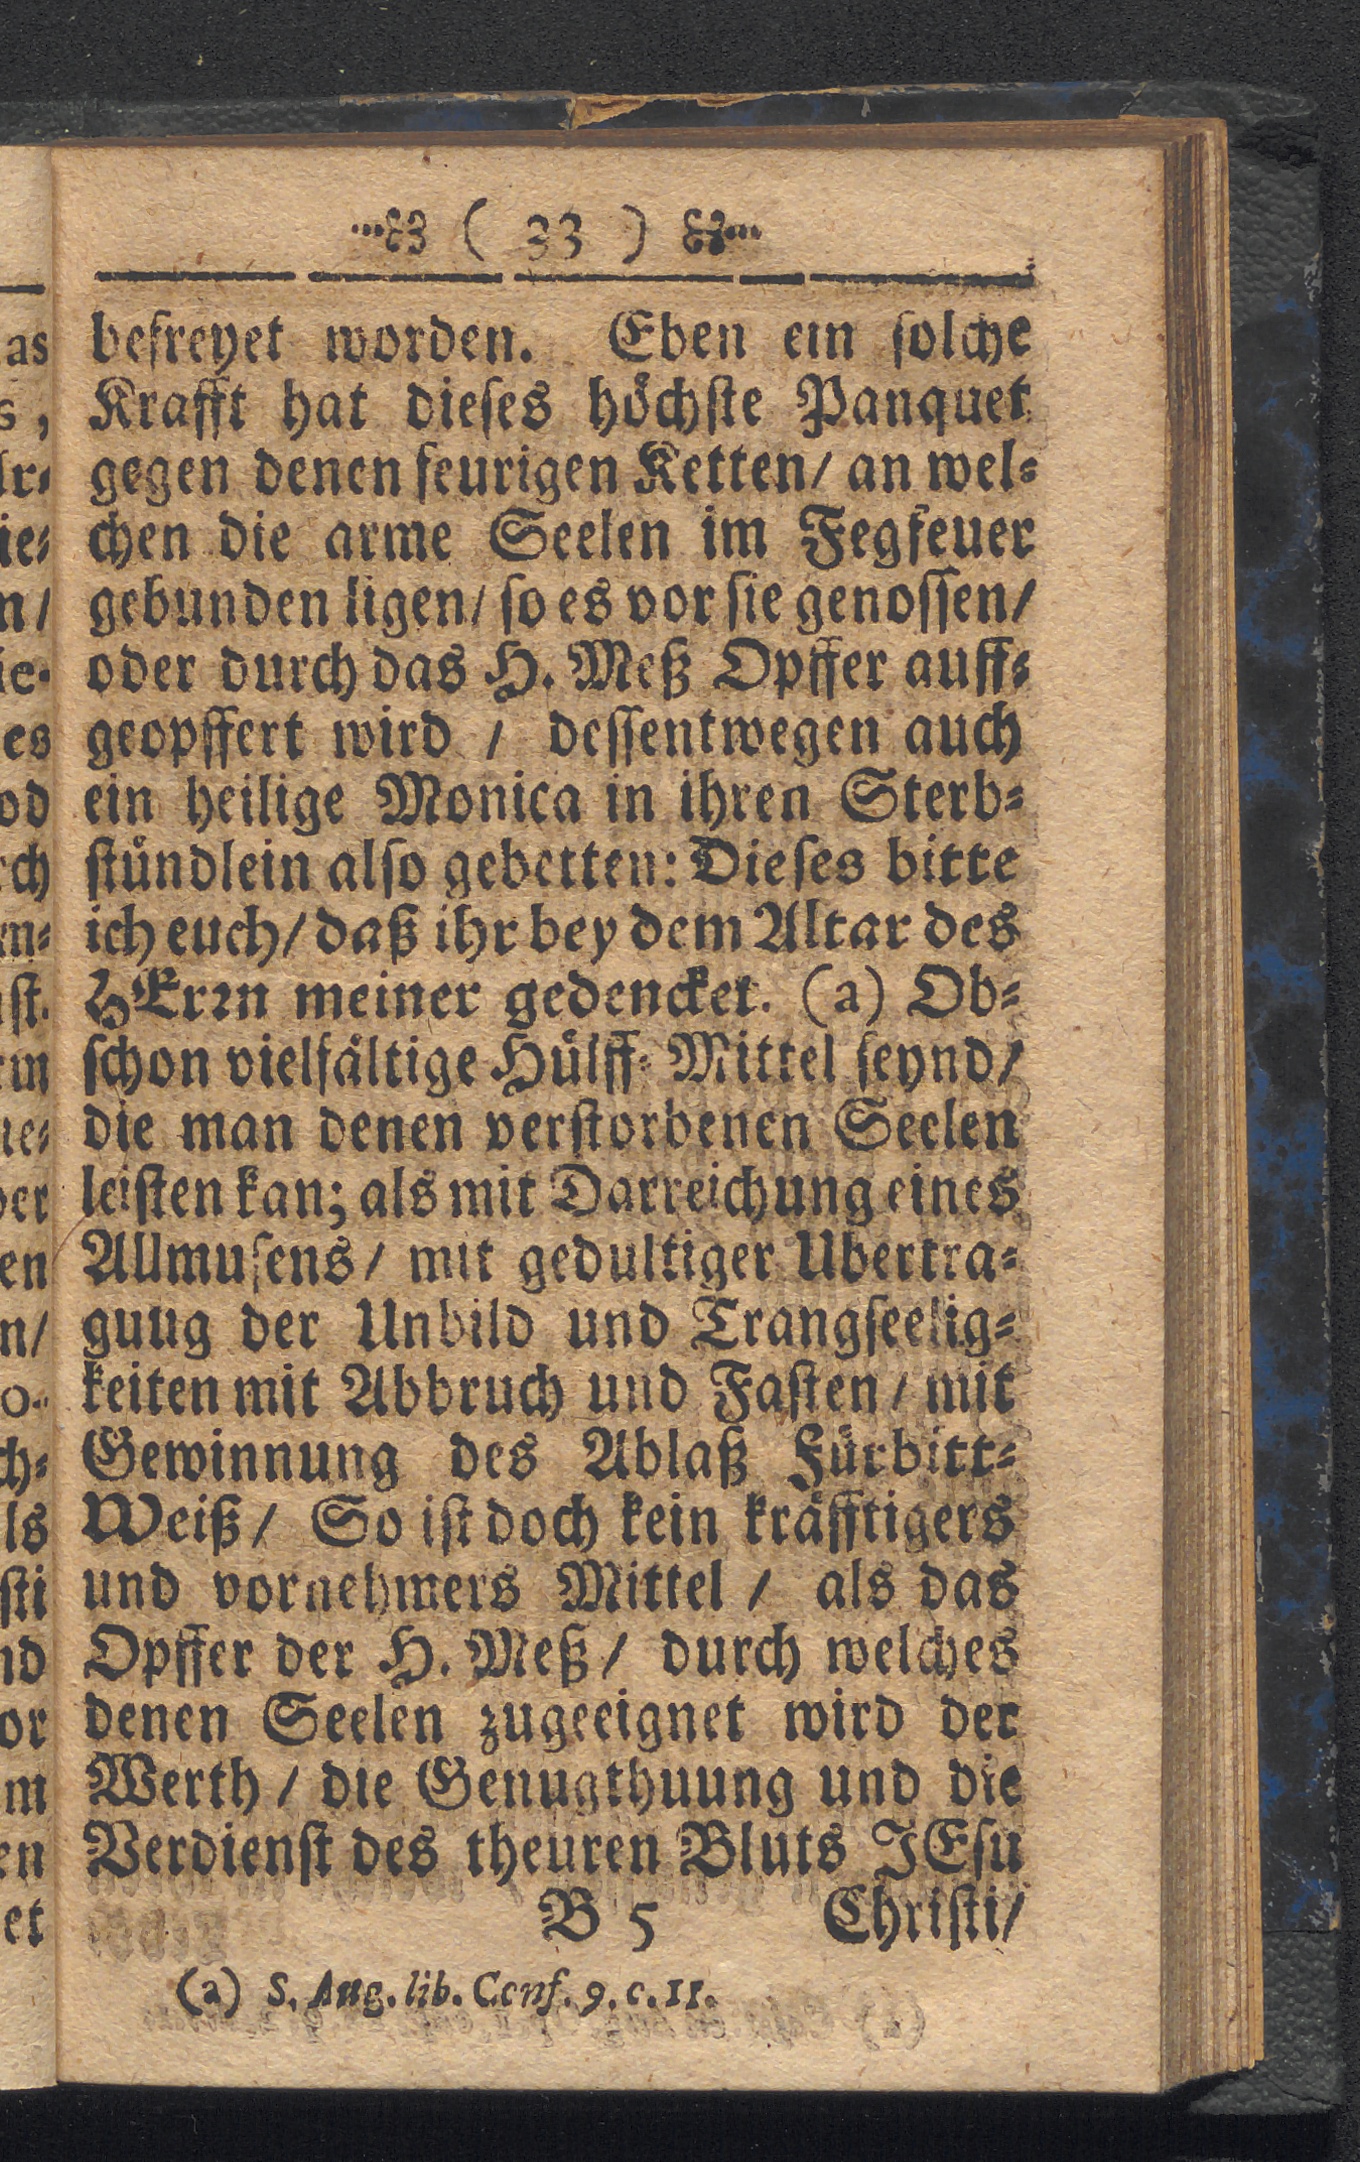 ( 33 )
befreyet worden. Eben ein solche
Krafft hat dieses höchste Panquet
gegen denen feurigen Ketten/ an wel-
chen die arme Seelen im Fegfeuer
gebunden ligen/ so es vor sie genossen/
oder durch das H. Meß Opffer auff-
geopffert wird / dessentwegen auch
ein heilige Monica in ihren Sterb-
stündlein also gebetten: Dieses bitte
ich euch/ daß ihr bey dem Altar des
HErrn meiner gedencket. (a) Ob-
schon vielfältige Hülff-Mittel seynd/
die man denen verstorbenen Seelen
leisten kan; als mit Darreichung eines
Allmusens/ mit gedultiger Ubertra-
guug der Unbild und Trangseelig-
keiten mit Abbruch und Fasten/ mit
Gewinnung des Ablaß Fürbitt-
Weiß/ So ist doch kein kräfftigers
und vornehmers Mittel / als das
Opffer der H. Meß/ durch welches
denen Seelen zugeeignet wird der
Werth/ die Genugthuung und die
Verdienst des theuren Bluts JEsu
B 5 Christi/
(a) S. Aug. lib. Conf. 9. c. 11.